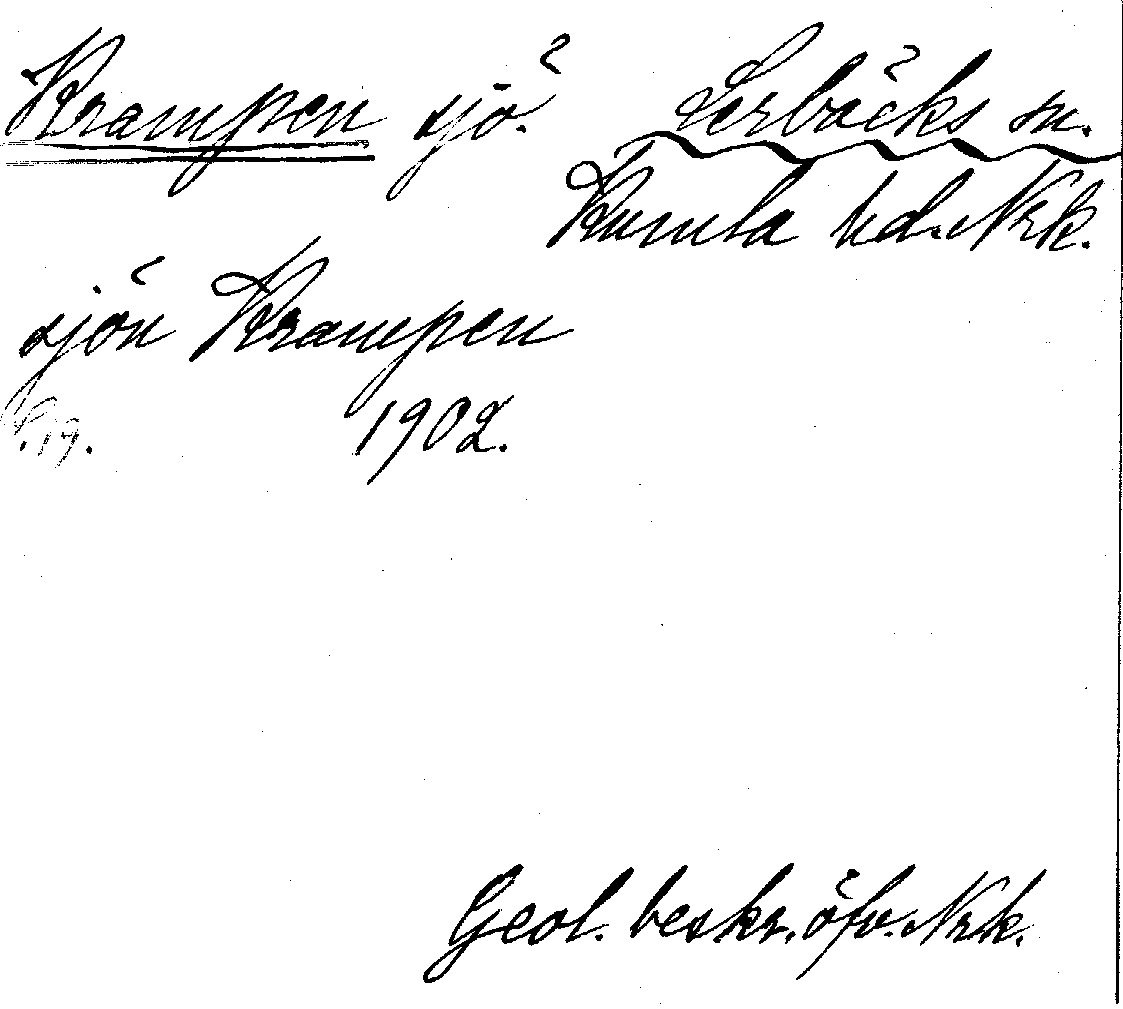 Krampen sjö. Lerbäcks sn.
Kumla hd. Nrk.
sjön Krampen
S. 19. 1902.
Geol. beskr. öfv. Nrk.